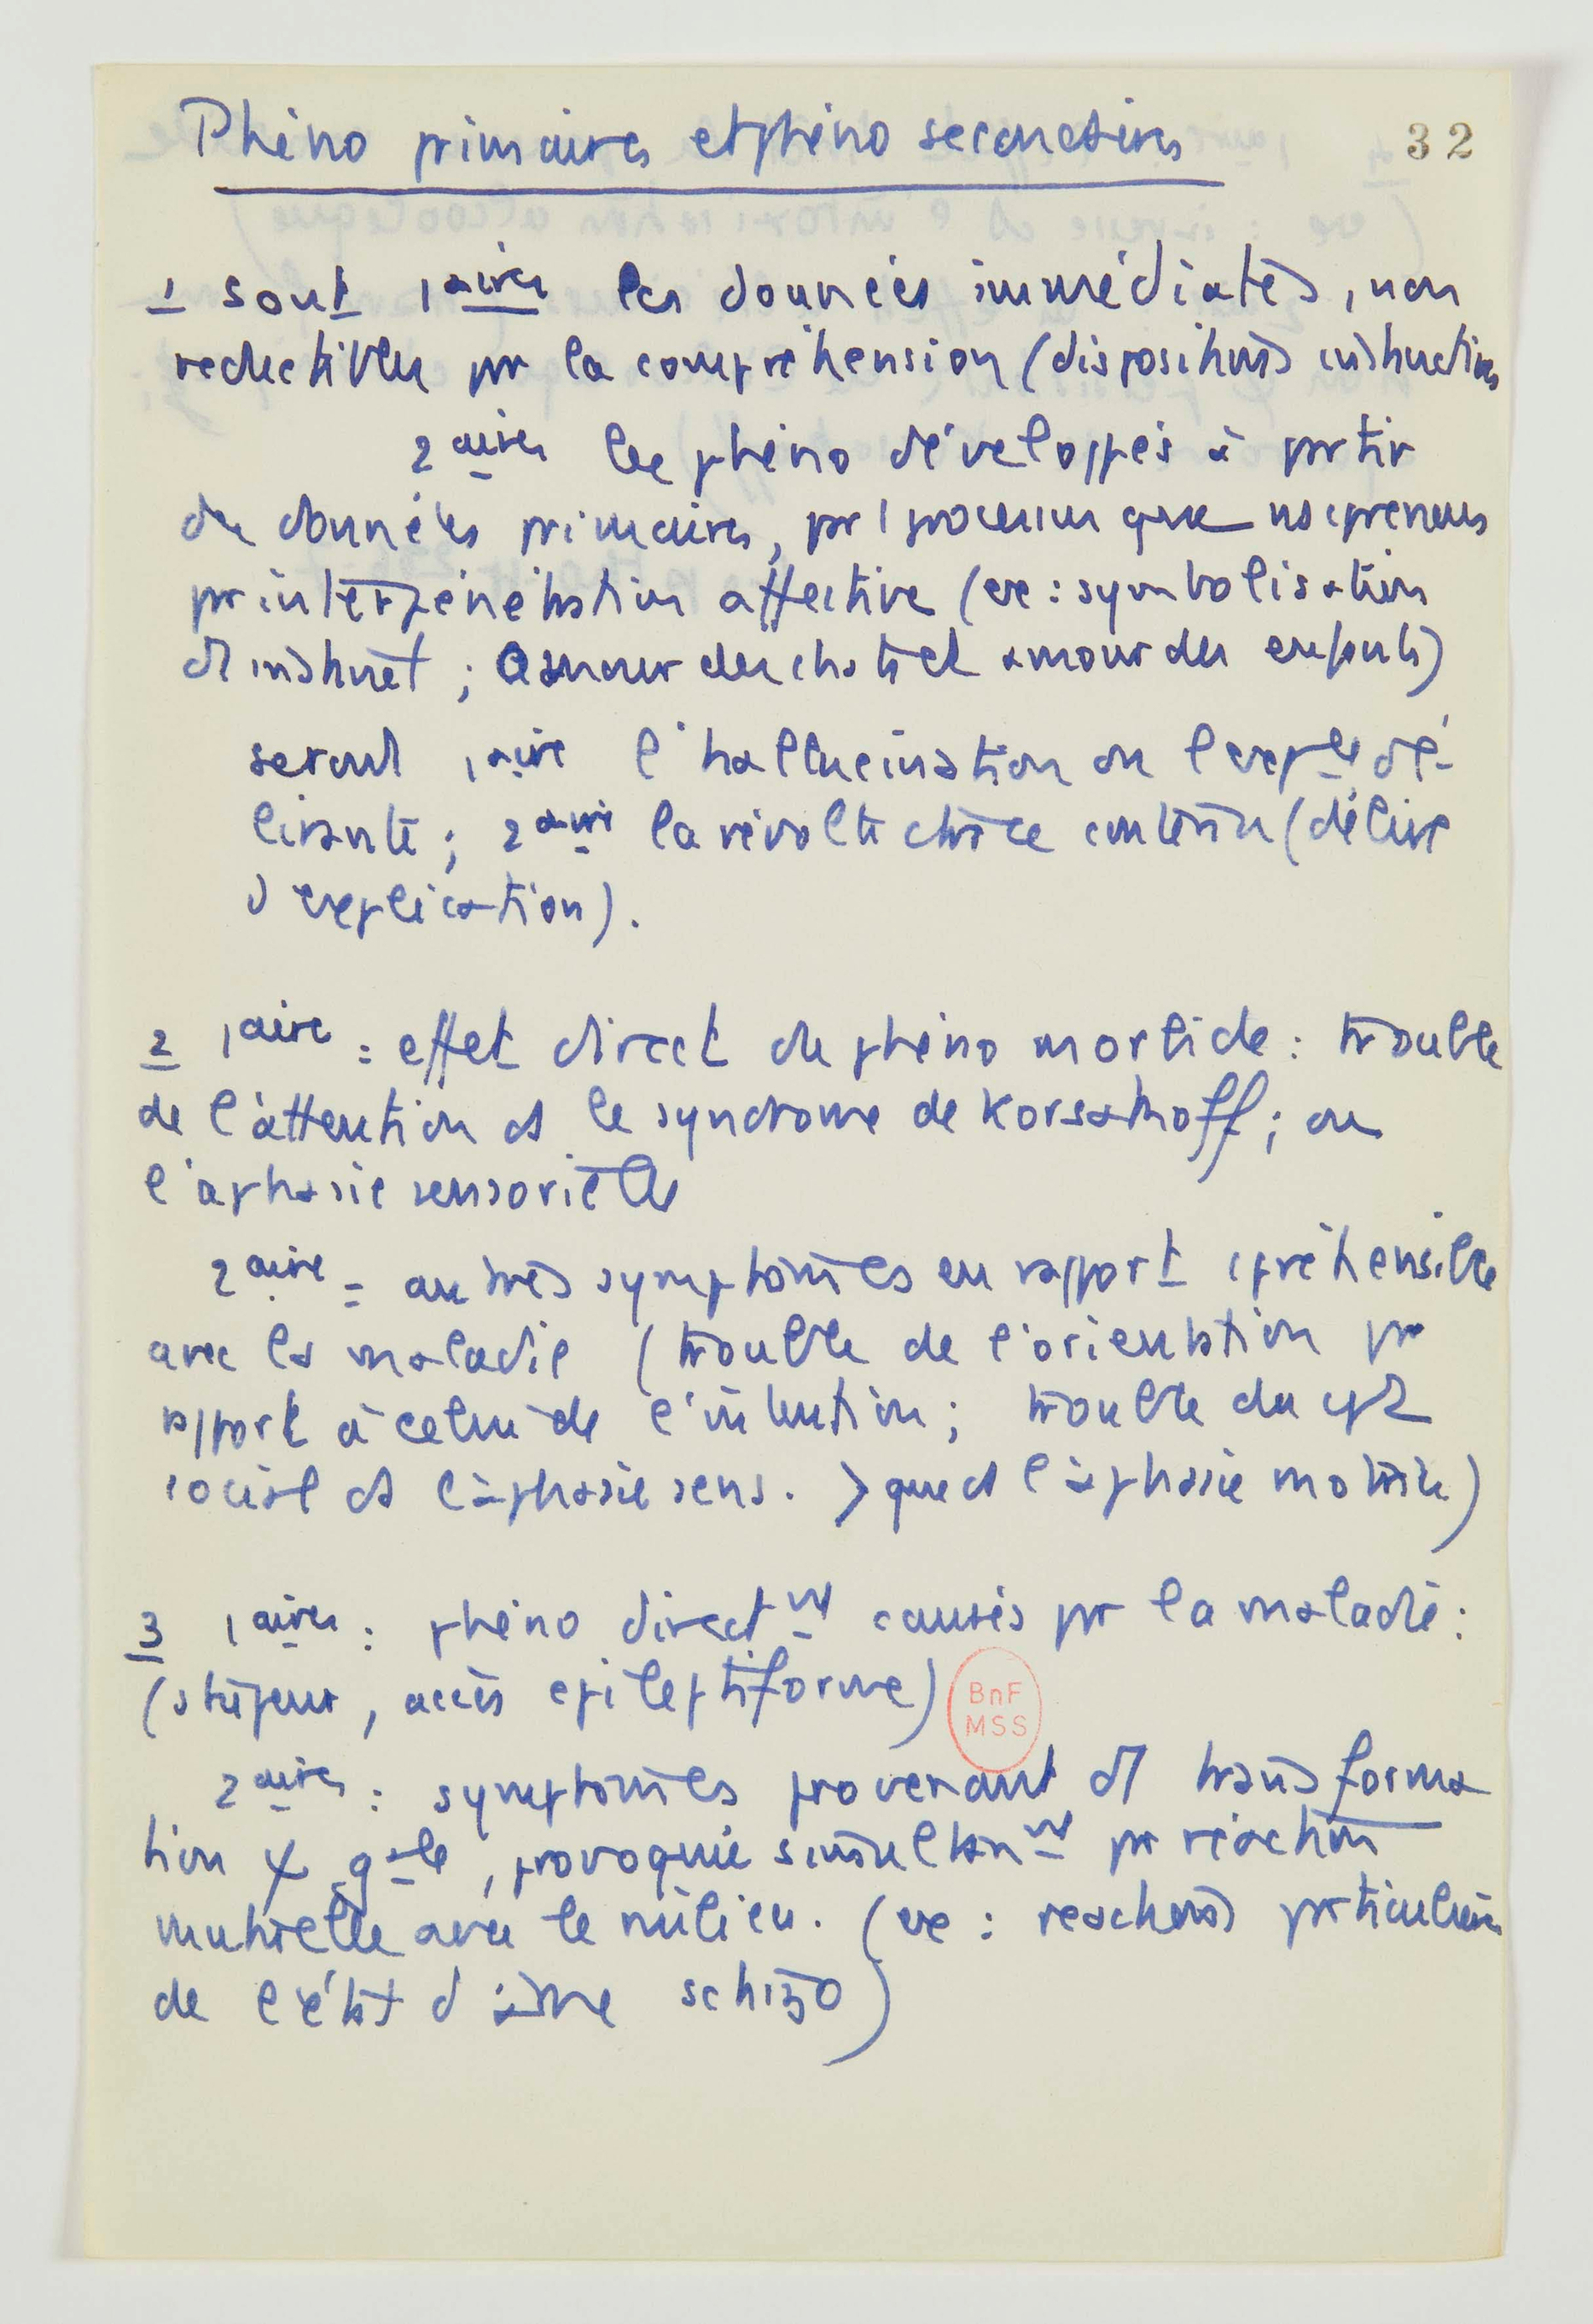 Phéno primaires et phéno secondaires
32
1 sont 1aires les données immédiates, non
reductibles pr la compréhension (dispositions instinctives
2aires les phéno développés à prtir
des données primaires, pr 1 processus que ns cprenons
pr interpénétration affective (ex : symbolisation
d'1 instinct ; amour des chats et amour des enfants)
seront 1aire l'hallucination ou l'expce dé-
lirante ; 2aire la révolte contenu (délire
d'explication).
2 1aire = effet direct du phéno morbide : trouble
de l'attention ds le syndrome de Korsakoff ; ou
l'aphasie sensorielle
2aire = autres symptômes en rapport cpréhensible
avec la maladie (trouble de l'orientation pr
rapport à celui de l'intention ; trouble du cpt
social ds l'aphasie sens. > que ds l'aphasie motrice)
3 1aires : phéno directmt causés pr la maladie :
(stupeur, accès epileptiforme)
BnF
MSS
2aires : symptômes provenant d'1 transforma
tion gale, provoquée simultanmt pr réaction
mutuelle avec le milieu. (ex : reactions prticulières
de l'état d'âme schizo)